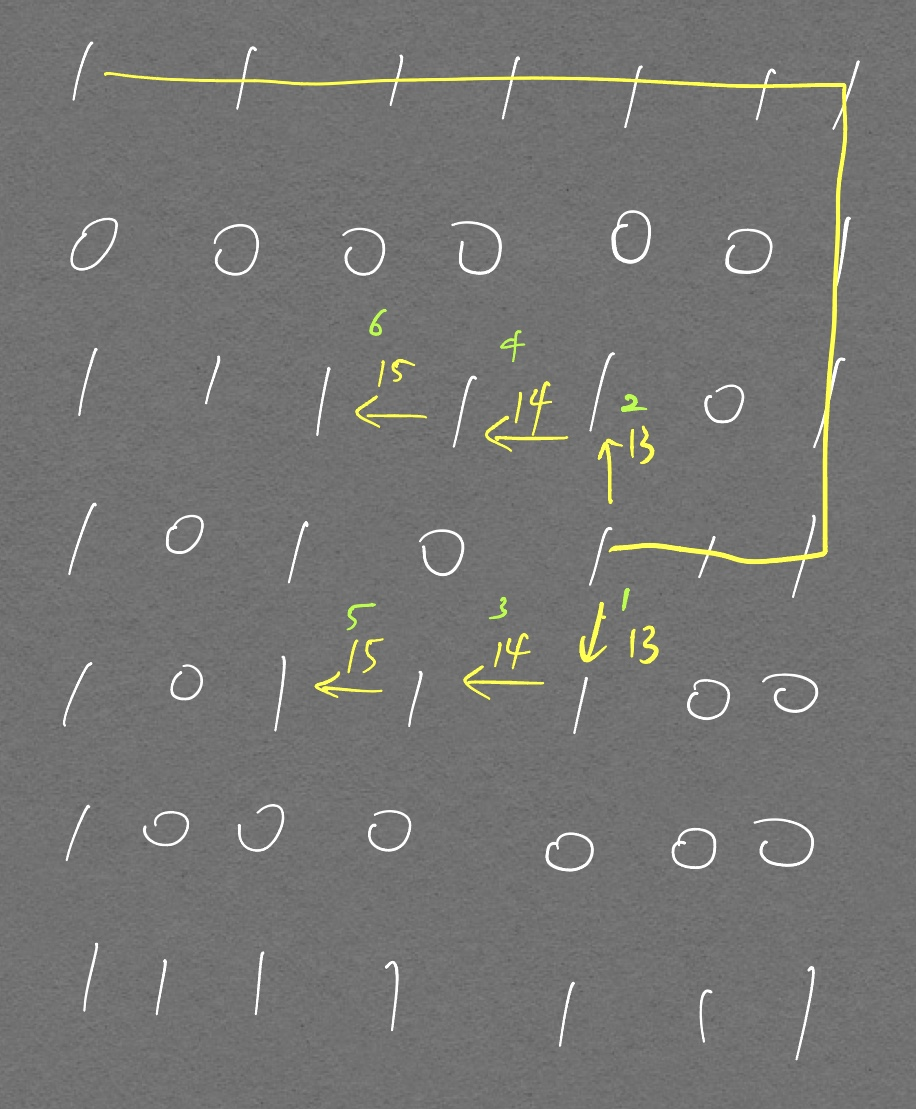 1 1 1 1 1 1 1
0 0 0 0 0 0 1
6 4
15 14 2
1 1 1 1 1 0 1
13
1 0 1 0 1 1 1
5 3 1
15 14 13
1 0 1 1 1 0 0
1 0 0 0 0 0 0
1 1 1 1 1 1 1